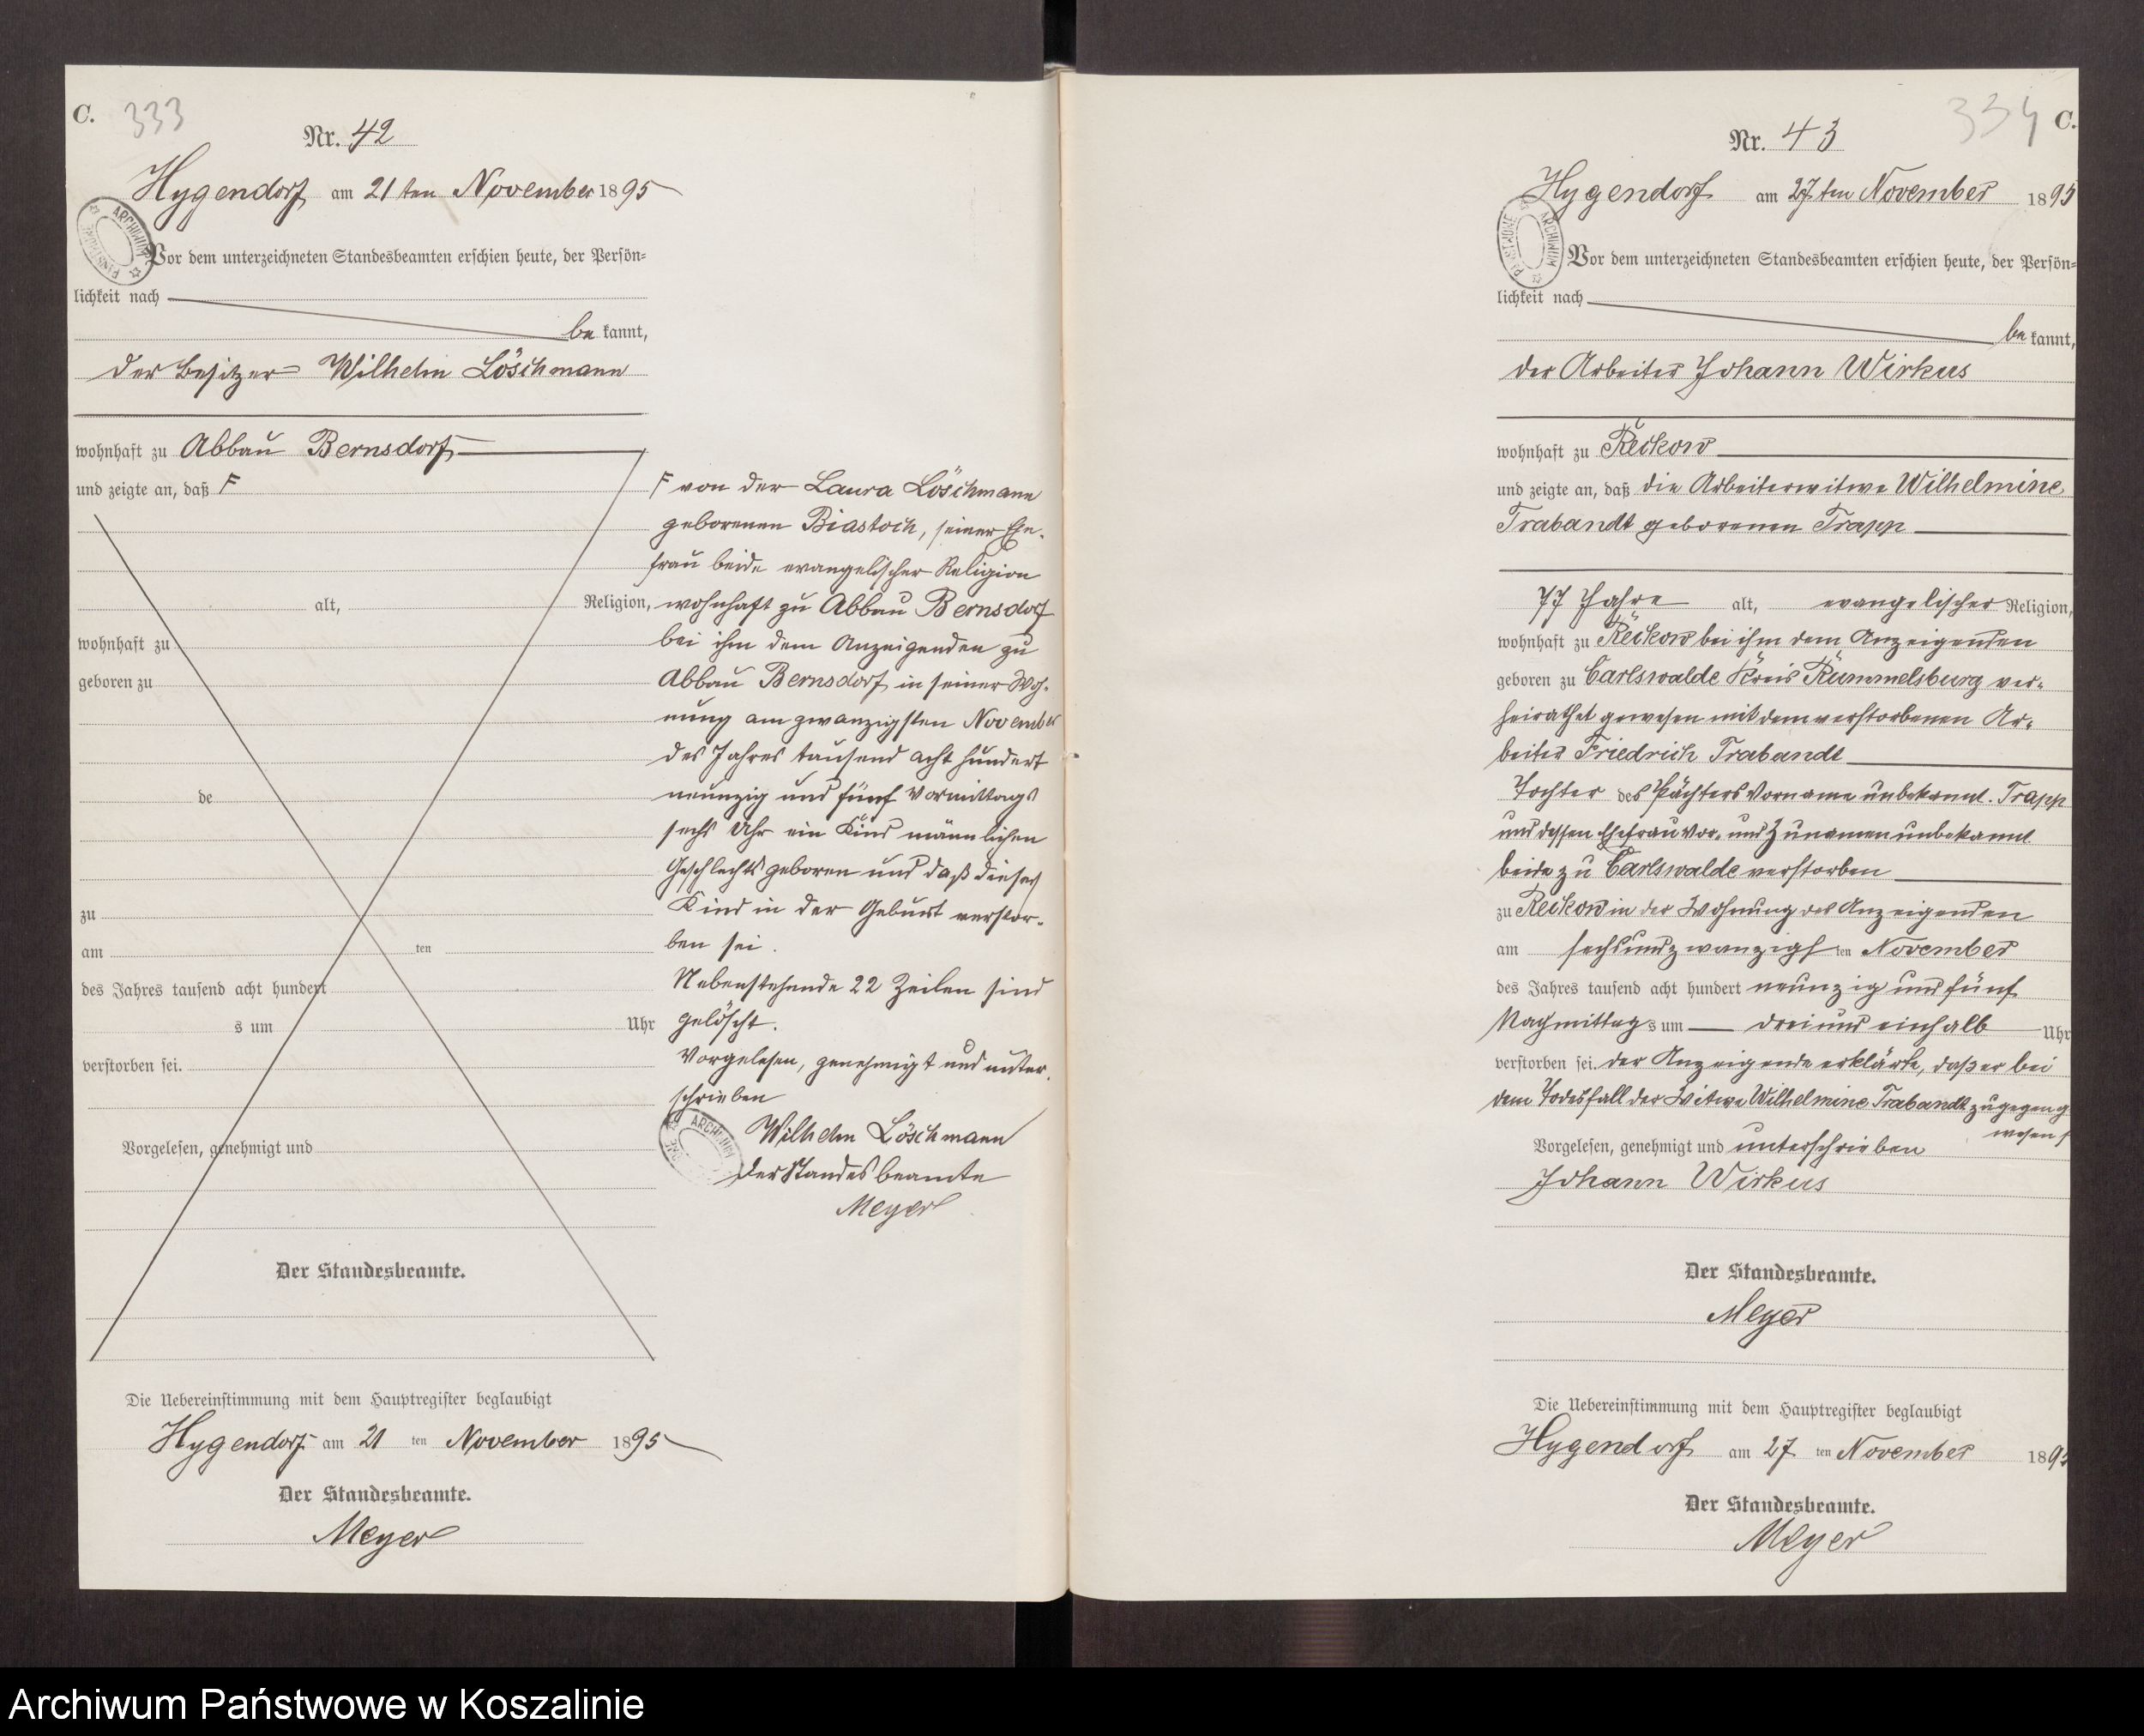 C. 333
Nr. 42
Hygendorf am 21ten November 1895
Vor dem unterzeichneten Standesbeamten erschien heute, der Persön=
lichkeit nach
be kannt,
der Besitzer Wilhelm Löschmann
wohnhaft zu Abbau Bernsdorf
und zeigte an, daß F
alt, Religion,
wohnhaft zu
geboren zu
de
zu
am ten
des Jahres tausend acht hundert
s um Uhr
verstorben sei.
Vorgelesen, genehmigt und
F von der Laura Löschmann
geborenen Biastoch, seiner Ehe-
frau beide evangelischer Religion
wohnhaft zu Abbau Bernsdorf
bei ihm dem Anzeigenden zu
Abbau Bernsdorf in seiner Woh-
nung am zwanzigsten November
des Jahres tausend acht hundert
neunzig und fünf Vormittags
sechs Uhr ein Kind männlichen
Geschlechts geboren und daß dieses
Kind in der Geburt verstor-
ben sei.
Nebenstehende 22 Zeilen sind
gelöscht.
Vorgelesen, genehmigt und unter-
schrieben
Wilhelm Löschmann
Der Standesbeamte
Meyer
Der Standesbeamte.
Die Uebereinstimmung mit dem Hauptregister beglaubigt
Hygendorf am 21 ten November 1895
Der Standesbeamte.
Meyer
334 C.
Nr. 43
Hygendorf am 27ten November 1895
Vor dem unterzeichneten Standesbeamten erschien heute, der Persön=
lichkeit nach
be kannt,
der Arbeiter Johann Wirkus
wohnhaft zu Reckow
und zeigte an, daß die Arbeiterwitwe Wilhelmine
Trabandt geborenen Trapp
77 Jahre alt, evangelischer Religion,
wohnhaft zu Reckow bei ihm dem Anzeigenden
geboren zu Carlswalde Kreis Rummelsburg ver-
heirathet gewesen mit dem verstorbenen Ar-
beiter Friedrich Trabandt
Tochter des Pächters Vorname unbekannt. Trapp
und dessen Ehefrau Vor- und Zunamen unbekannt
beide zu Carlswalde verstorben
zu Reckow in der Wohnung des Anzeigenden
am sechsundzwanzigs ten November
des Jahres tausend acht hundert neunzig und fünf
Nachmittag s um drei und einhalb Uhr
verstorben sei. der Anzeigende erklärte, daß er bei
dem Todesfall der Witwe Wilhelmine Trabandt zugegen ge
wesen
Vorgelesen, genehmigt und unterschrieben
Johann Wirkus
Der Standesbeamte.
Meyer
Die Uebereinstimmung mit dem Hauptregister beglaubigt
Hygendorf am 27 ten November 1895
Der Standesbeamte.
Meyer
ARCHIWUM PAŃSTWOWE
Archiwum Państwowe w Koszalinie